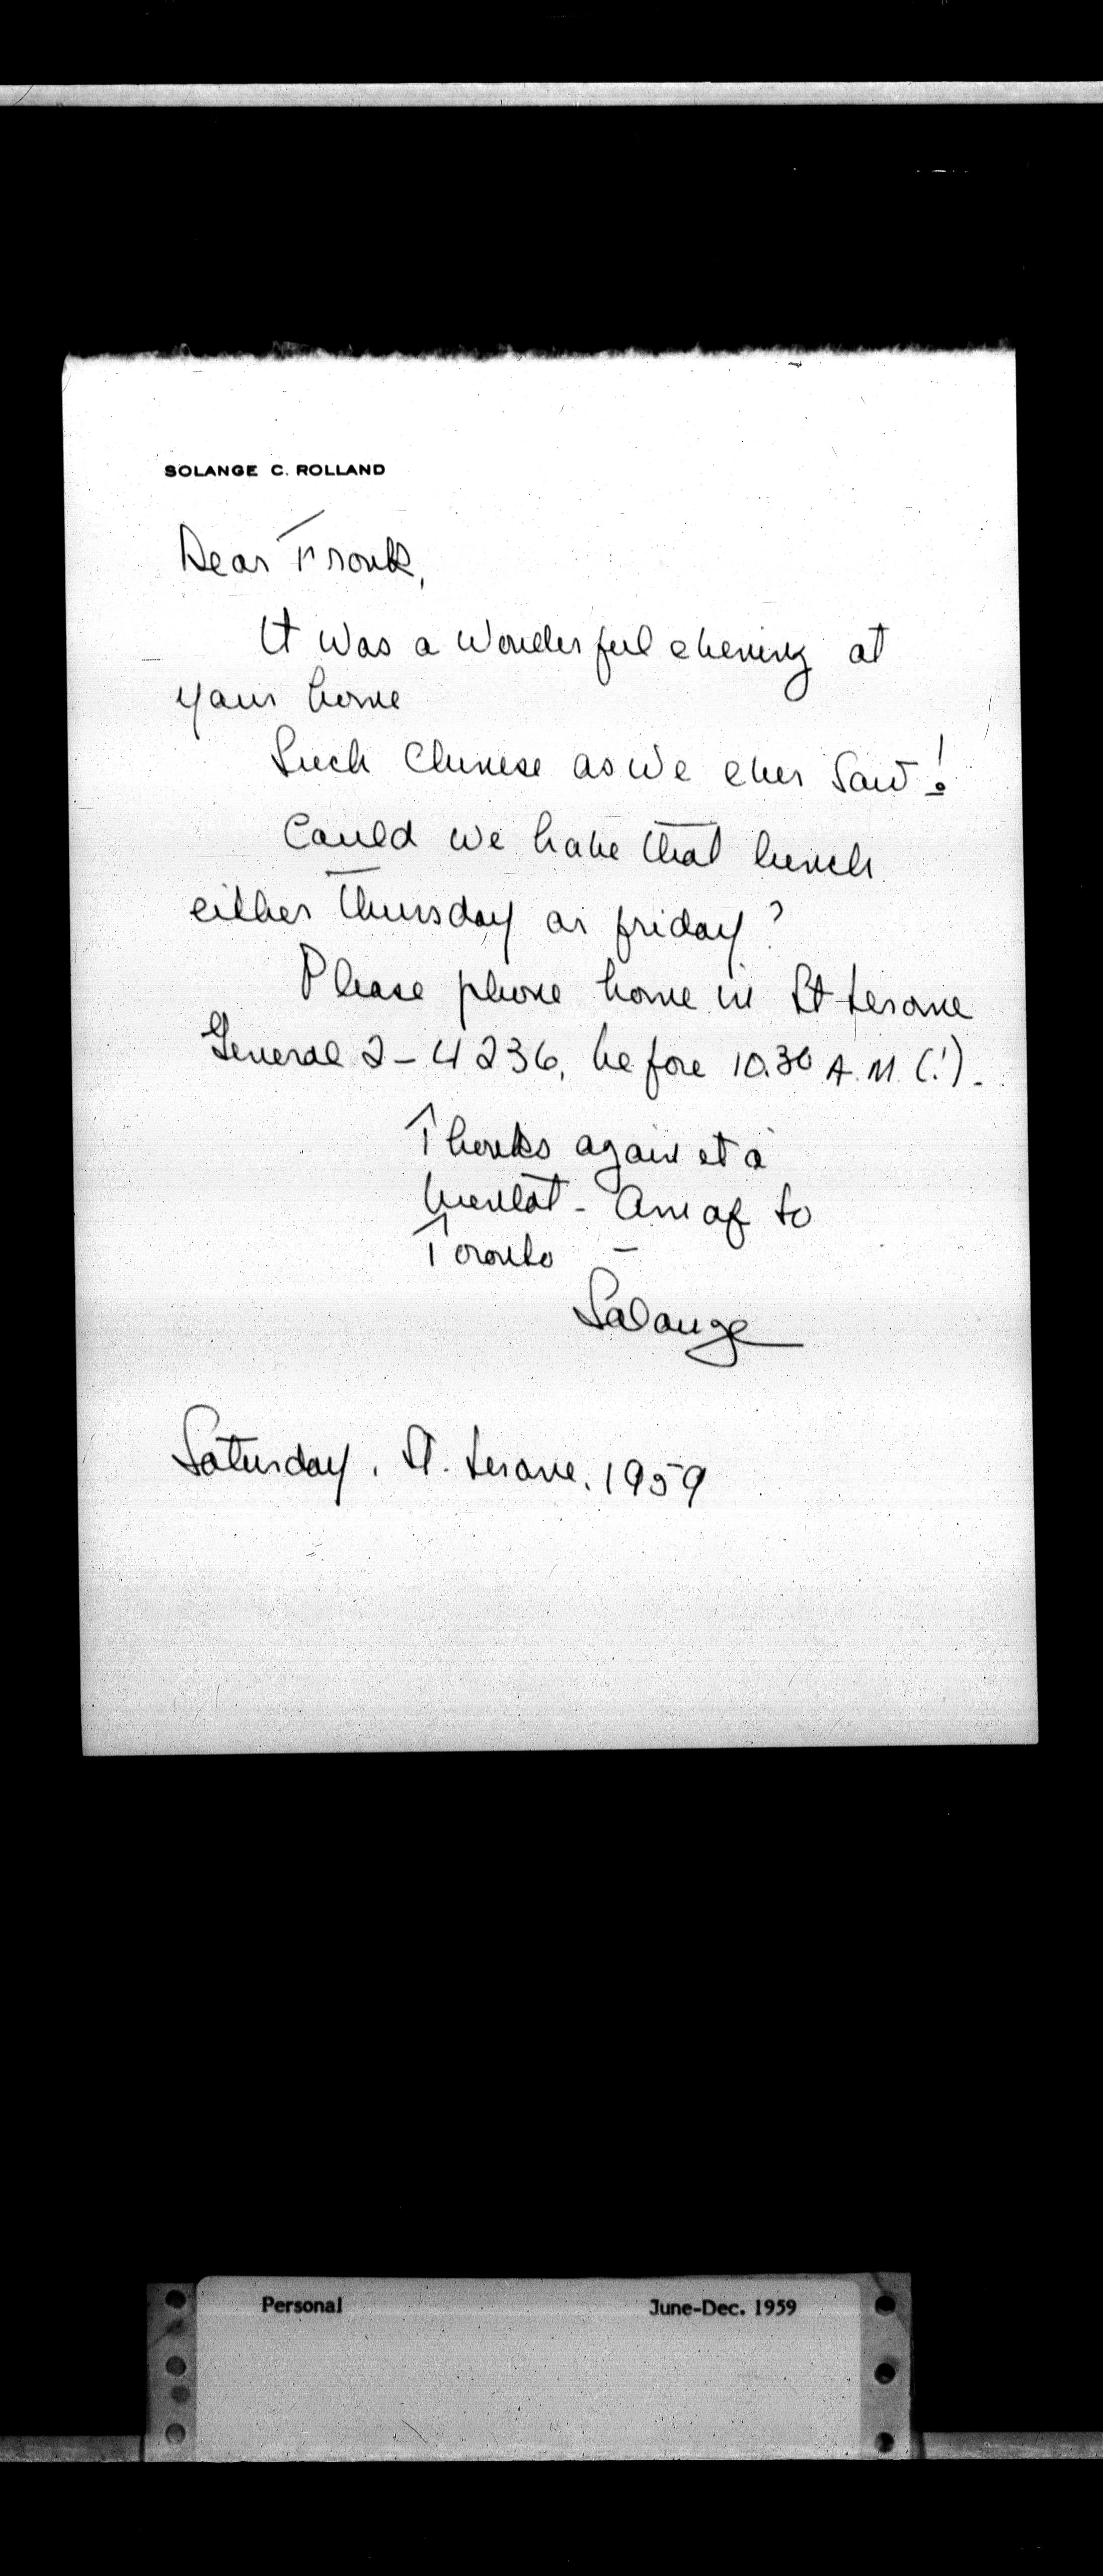 SOLANGE C. ROLLAND
Dear Frank,
It was a wonderful evening at
your home
Such Chinese as we ever saw!
Could we have that lunch
either Thursday or friday?
Please phone home in St Jerome
General 2-4236, before 10.30 A.M. (!).
Thanks again et à
bientôt - Am off to
Toronto -
Solange
Saturday, St. Jerome, 1959
Personal June-Dec. 1959